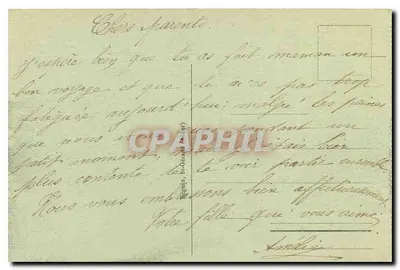 Chers parents
J'espère bien que tu as fait maman un
bon voyage et que tu n'es pas trop
fatiguée aujourd'hui; malgré les peines
que nous pendant un
petit moment, bien
plus contente de te voir partie ensemble
Nous vous embrassons bien affectueusement
Votre fille qui vous aime
Amélie
CPARPHIL